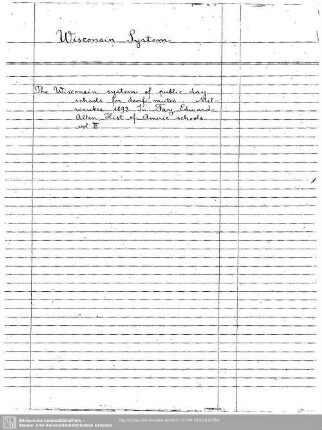 Wisconsin System
The Wisconsin system of public day
schools for deaf mutes. Mil-
waukee 1893. In Fay, Edward
Allen, Hist of Americ schools
vol II
Sächsische Landesbibliothek -
Staats- und Universitätsbibliothek Dresden